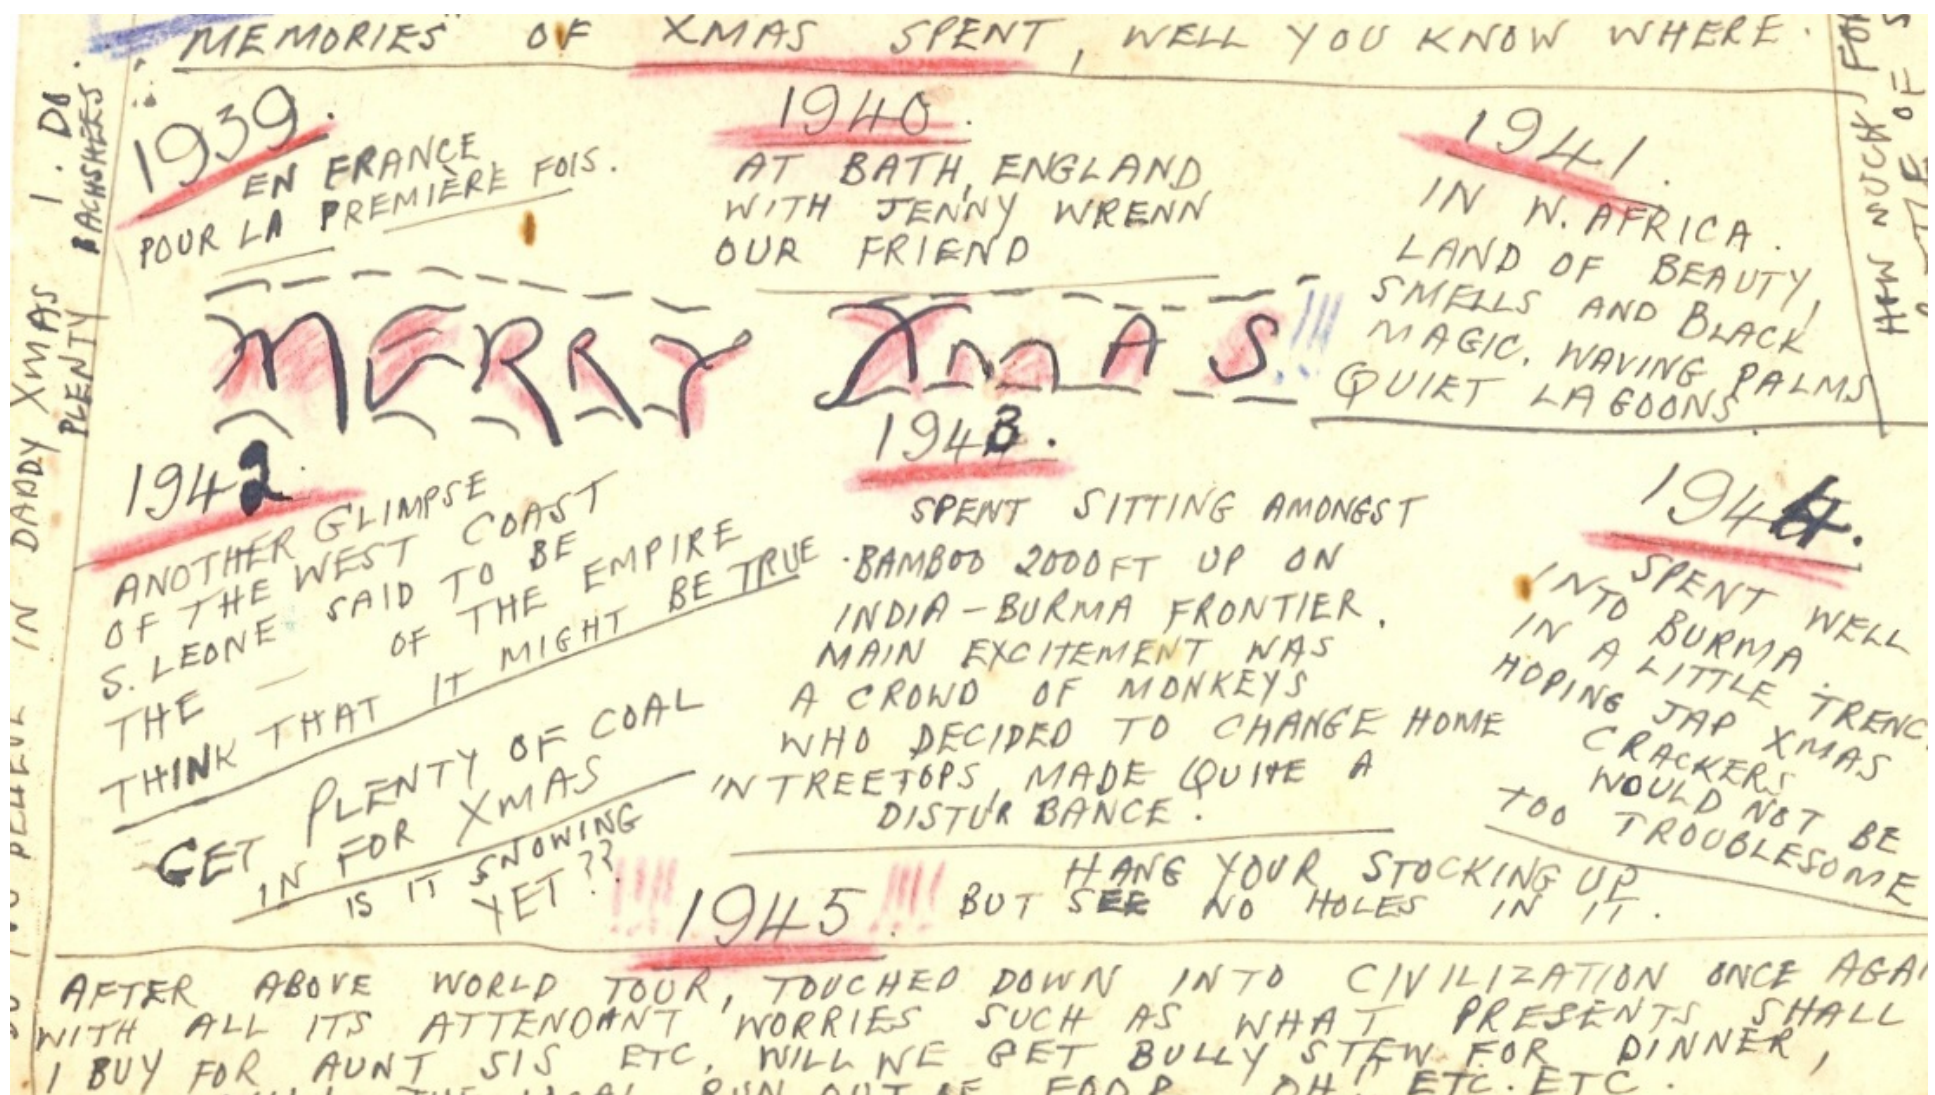 MEMORIES OF XMAS SPENT, WELL YOU KNOW WHERE.
1939.
EN FRANCE
POUR LA PREMIÈRE FOIS.
1940.
AT BATH, ENGLAND
WITH JENNY WRENN
OUR FRIEND
1941.
IN W. AFRICA.
LAND OF BEAUTY,
SMELLS AND BLACK
MAGIC. WAVING PALMS
QUIET LAGOONS.
MERRY XMAS!!!
1942.
ANOTHER GLIMPSE
OF THE WEST COAST
S. LEONE SAID TO BE
THE — OF THE EMPIRE
THINK THAT IT MIGHT BE TRUE
GET PLENTY OF COAL
IN FOR XMAS
IS IT SNOWING
YET??
1943.
SPENT SITTING AMONGST
BAMBOO 2000FT UP ON
INDIA-BURMA FRONTIER.
MAIN EXCITEMENT WAS
A CROWD OF MONKEYS
WHO DECIDED TO CHANGE HOME
IN TREETOPS, MADE QUITE A
DISTURBANCE.
1944.
SPENT WELL
INTO BURMA.
IN A LITTLE TRENC
HOPING JAP XMAS
CRACKERS
WOULD NOT BE
TOO TROUBLESOME
!!!! 1945 !!!!
HANG YOUR STOCKING UP
BUT SEE NO HOLES IN IT.
AFTER ABOVE WORLD TOUR, TOUCHED DOWN INTO CIVILIZATION ONCE AGAI
WITH ALL ITS ATTENDANT WORRIES SUCH AS WHAT PRESENTS SHALL
I BUY FOR AUNT SIS ETC. WILL WE GET BULLY STEW FOR DINNER,
THE LOCAL RUN OUT OF FOOD. OH, ETC. ETC.
IN DADDY XMAS I. DO.
PLENTY BACHSHEES
HOW MUCH FOR
OF